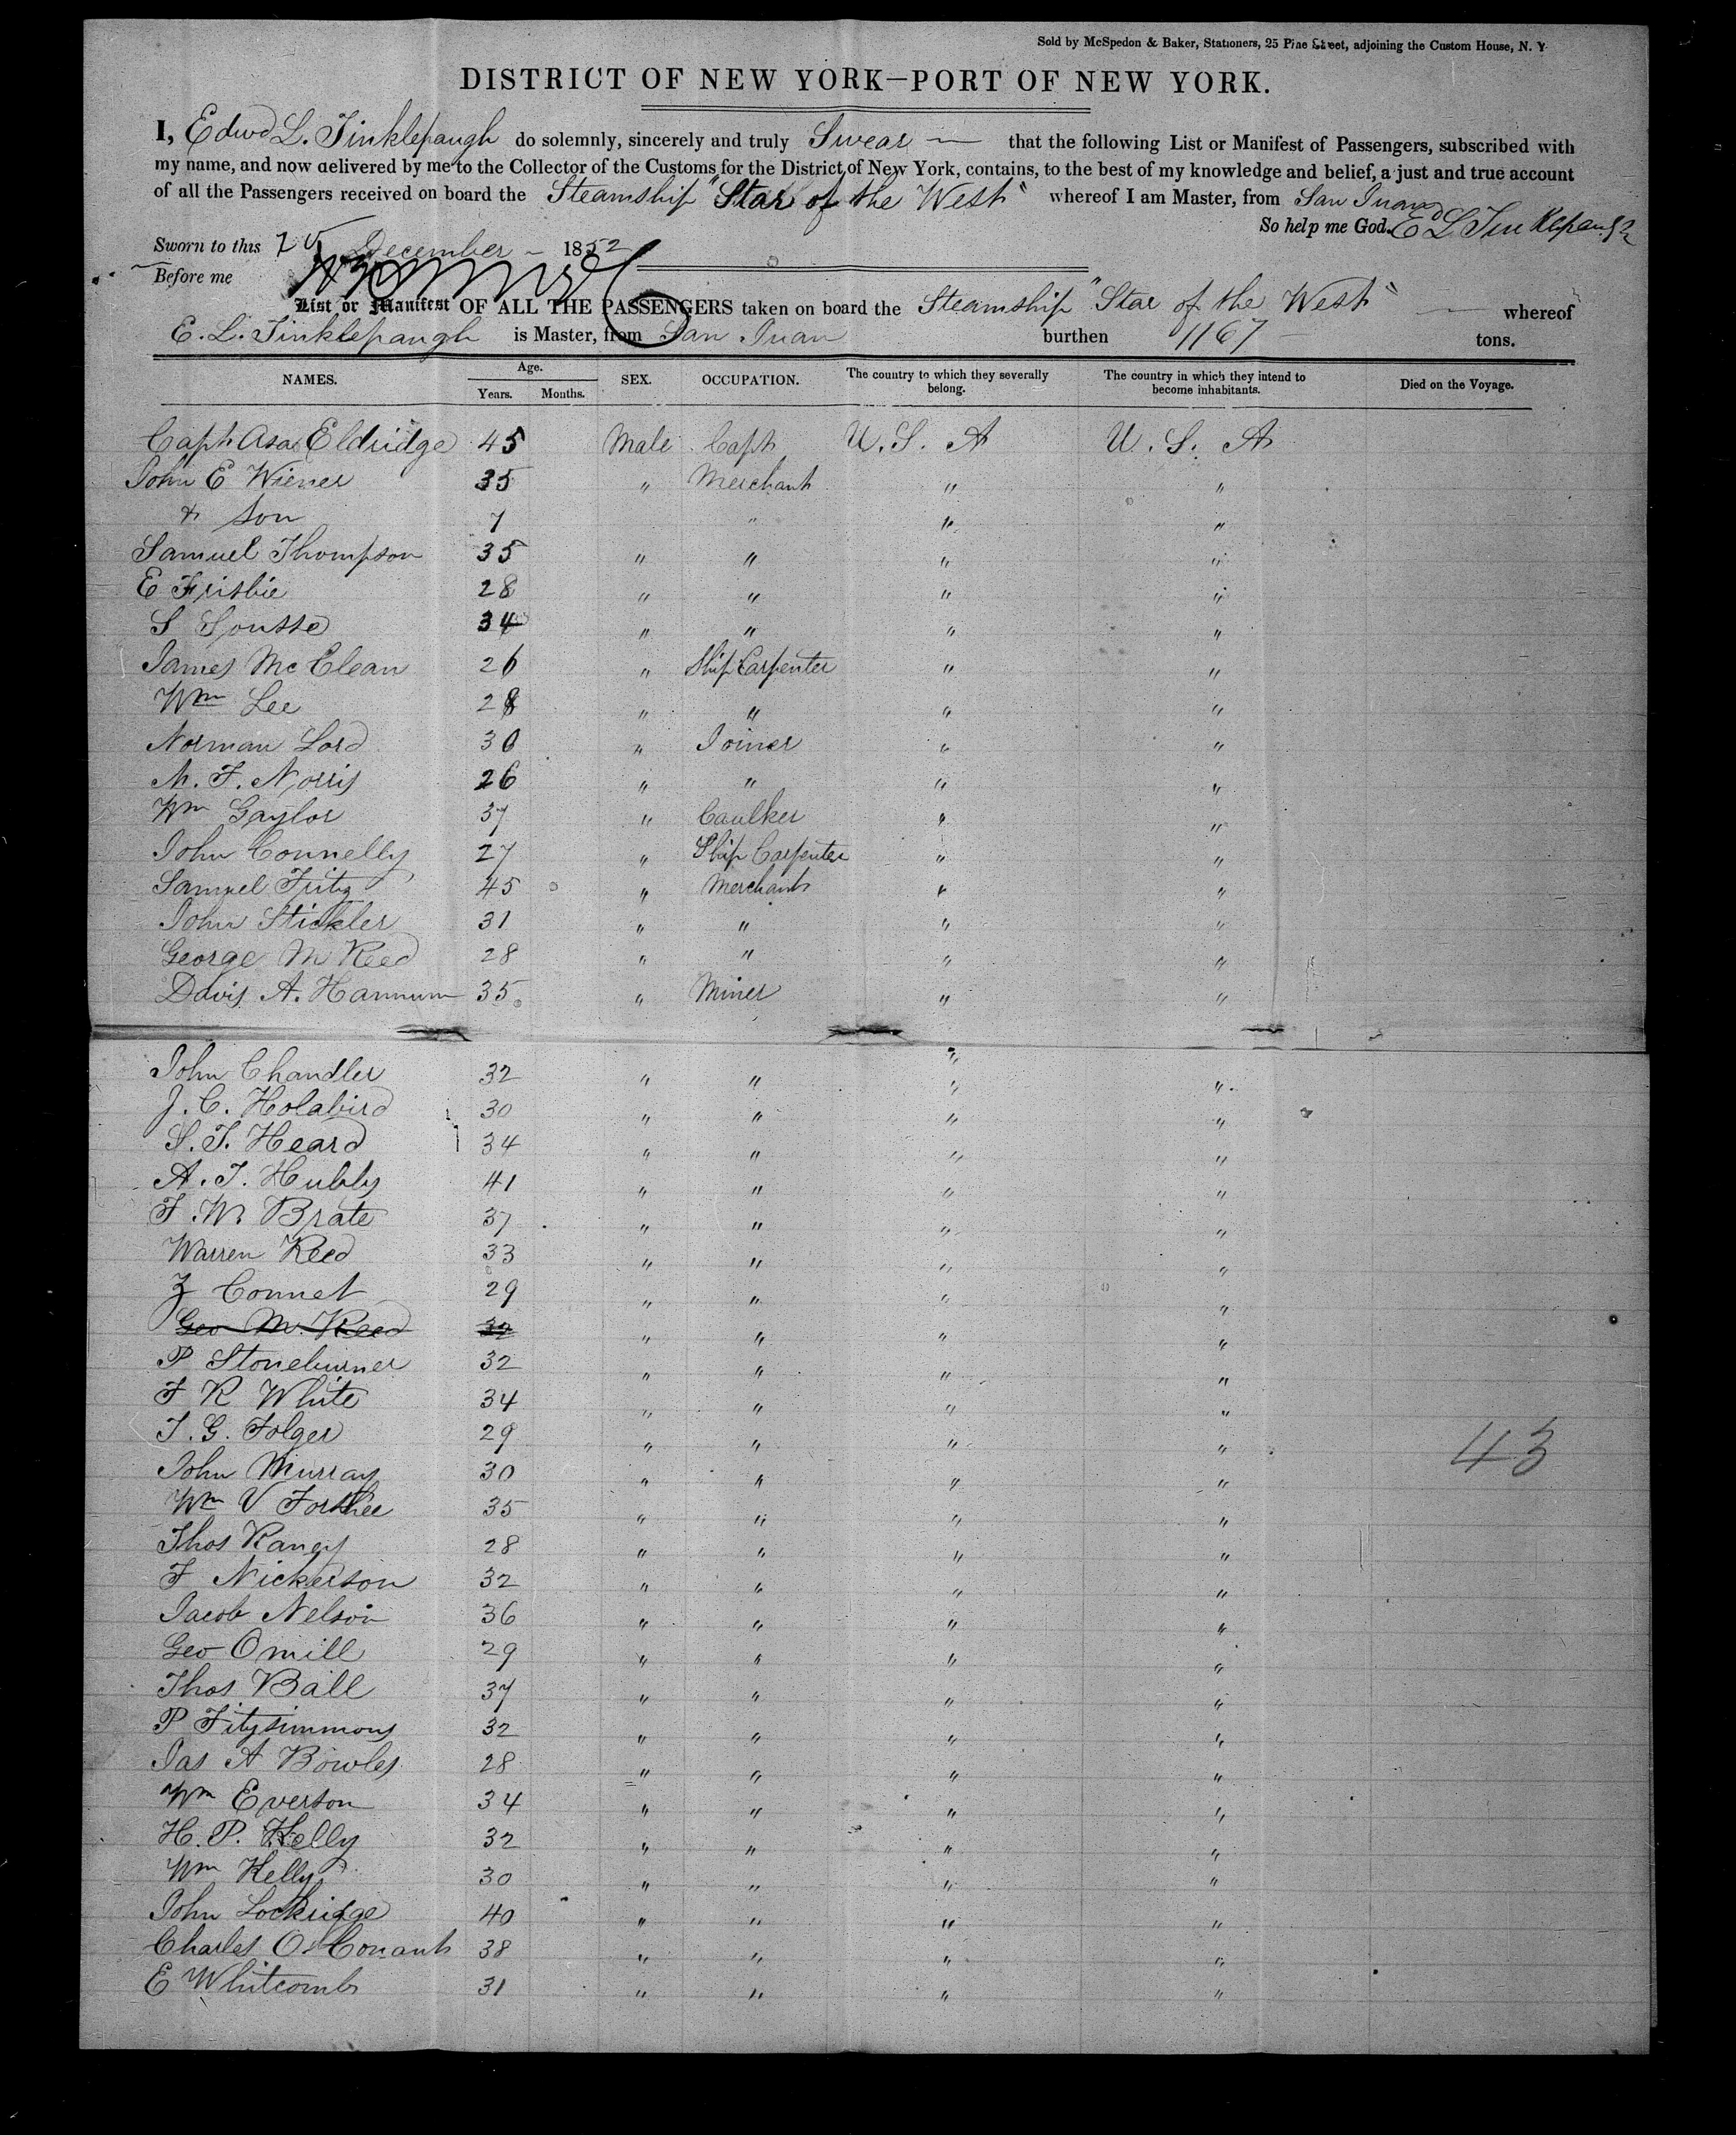 Sold by McSpedon & Baker, Stationers, 25 Pine Street, adjoining the Custom House, N. Y.
DISTRICT OF NEW YORK—PORT OF NEW YORK.
I, Edwd L. Tinklepaugh do solemnly, sincerely and truly Swear — that the following List or Manifest of Passengers, subscribed with
my name, and now delivered by me to the Collector of the Customs for the District of New York, contains, to the best of my knowledge and belief, a just and true account
of all the Passengers received on board the Steamship "Star of the West" whereof I am Master, from San Juan
So help me God. Ed L Tinklepaugh
Sworn to this December 1852
Before me
List or Manifest OF ALL THE PASSENGERS taken on board the Steamship "Star of the West" whereof
E. L. Tinklepaugh is Master, from San Juan burthen 1167 tons.
NAMES. Age. Years. Months. SEX. OCCUPATION. The country to which they severally belong. The country in which they intend to become inhabitants. Died on the Voyage.
Capt Asa Eldridge 45 Male Capt U. S. A U. S. A
John E Wiener 35 " Merchant " "
& Son 7 " " "
Samuel Thompson 35 " " " "
E Frisbie 28 " " " "
S 34 " " " "
James McClean 26 " Ship Carpenter " "
Wm Lee 28 " " " "
Norman Lord 30 " Joiner " "
M. F. Norris 26 " " " "
Wm Gaylor 37 " Caulker " "
John Connelly 27 " Ship Carpenter " "
Samuel Fritz 45 " Merchant " "
John Stickler 31 " " " "
George M Reed 28 " " " "
Davis A. Hannum 35 " Miner " "
John Chandler 32 " " " "
J. C. Holabird 30 " " " "
S. T. Heard 34 " " " "
A. T. Hubby 41 " " " "
F. W. Brate 37 " " " "
Warren Reed 33 " " " "
Z Connet 29 " " " "
Geo M. Reed 32 " " " "
P Stoneburner 32 " " " "
F R White 34 " " " "
T. G. Folger 29 " " " "
43
John Murray 30 " " " "
Wm V Forshee 35 " " " "
Thos Raney 28 " " " "
F Nickerson 32 " " " "
Jacob Nelson 36 " " " "
Geo Omill 29 " " " "
Thos Ball 37 " " " "
P Fitzsimmons 32 " " " "
Jas A Bowles 28 " " " "
Wm Everson 34 " " " "
H. P. Kelly 32 " " " "
Wm Kelly 30 " " " "
John Lockridge 40 " " " "
Charles O. Conant 38 " " " "
E Whitcomb 31 " " " "